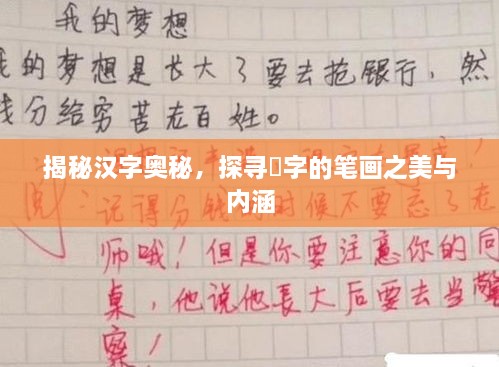 我的梦想
我的梦想是长大了要去抢银行，然
钱分给穷苦老百姓。
揭秘汉字奥秘，探寻字的笔画之美与
内涵
阅
记得分钱时候不要忘了老
师哦！但是你要注意你的同
桌，他说他長大后要去当警
察！